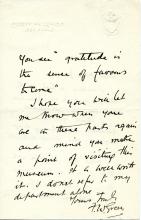 You see " gratitude is
the sense of favours
to come"
I hope you will let
me know when you
are in these parts again
and mind you make
a point of visiting this
museum. It is well worth
it. I don't refer to my
department alone
Yours truly